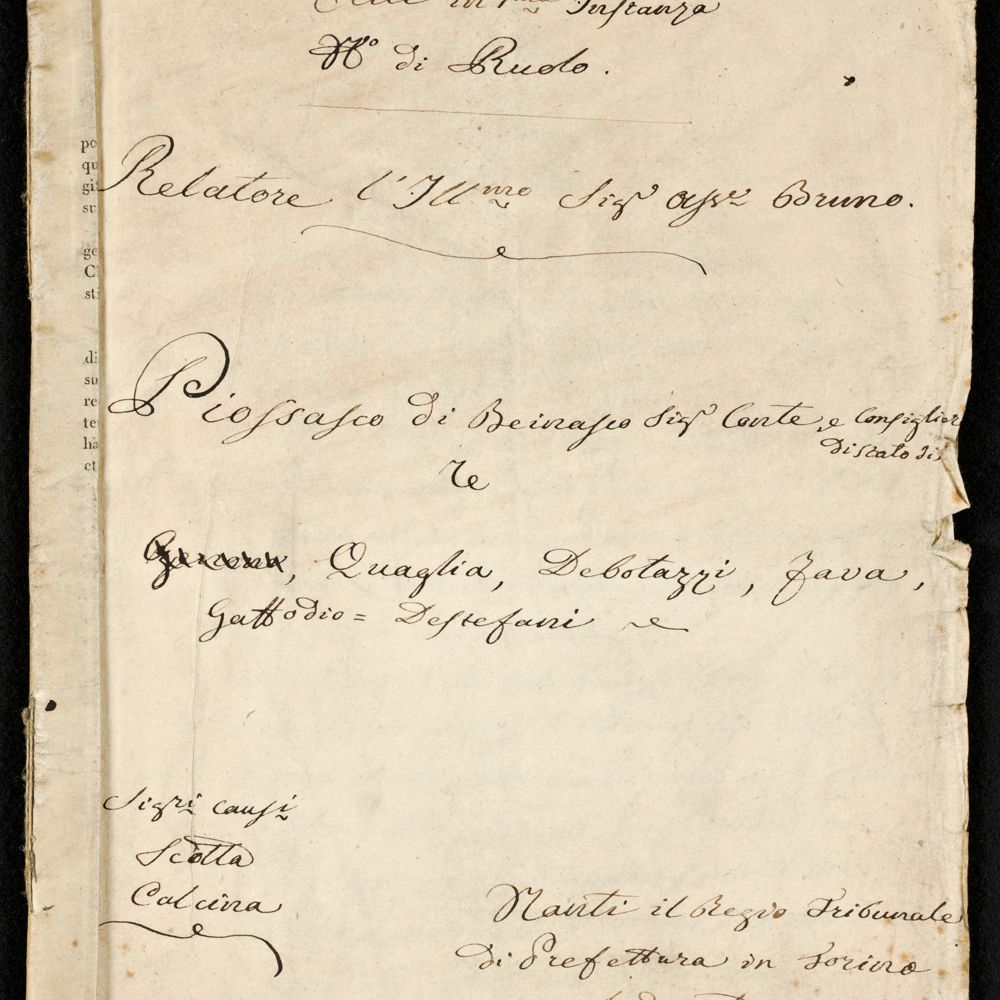 in 1ma Instanza
No di Ruolo.
Relatore l'Illmo Sigr Assre Bruno.
Piossasco di Beinasco Sigr Conte, e Consiglier
di stato di
re
Quaglia, Debotazzi, Java,
Gattodio = Destefani
Sigri Causi
Scotta
Calcina
Nanti il Regio Tribunale
di Prefettura in Torino
po
qu
gi
su
ge
C
sti
di
su
re
te
ha
et